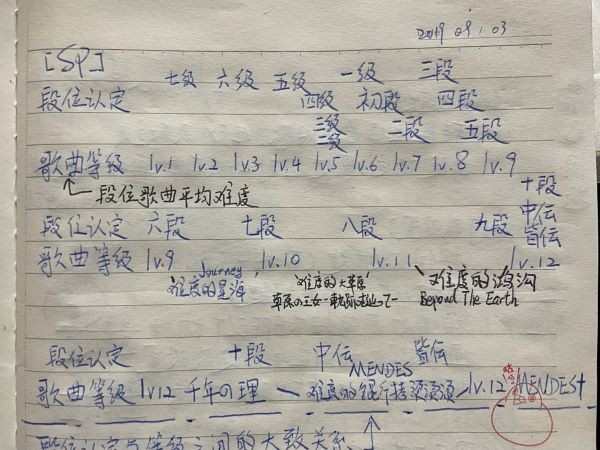 2019.09.03
[SP]
七级 六级 五级 一级 三段
段位认定 四级 初段 四段
三级 二级 二段 五段
歌曲等级 lv.1 lv.2 lv.3 lv.4 lv.5 lv.6 lv.7 lv.8 lv.9
段位歌曲平均难度
十段
中伝
皆伝
段位认定 六段 七段 八段 九段
歌曲等级 lv.9 lv.10 lv.11 lv.12
Journey
难度的星海
难度的大草原
草原の王女
难度的鸿沟
Beyond The Earth
段位认定 十段 中伝 皆伝
MENDES
歌曲等级 lv12 千年の理 难度的银行 lv.12 MENDES+
段位认定与等级之间的大致关系